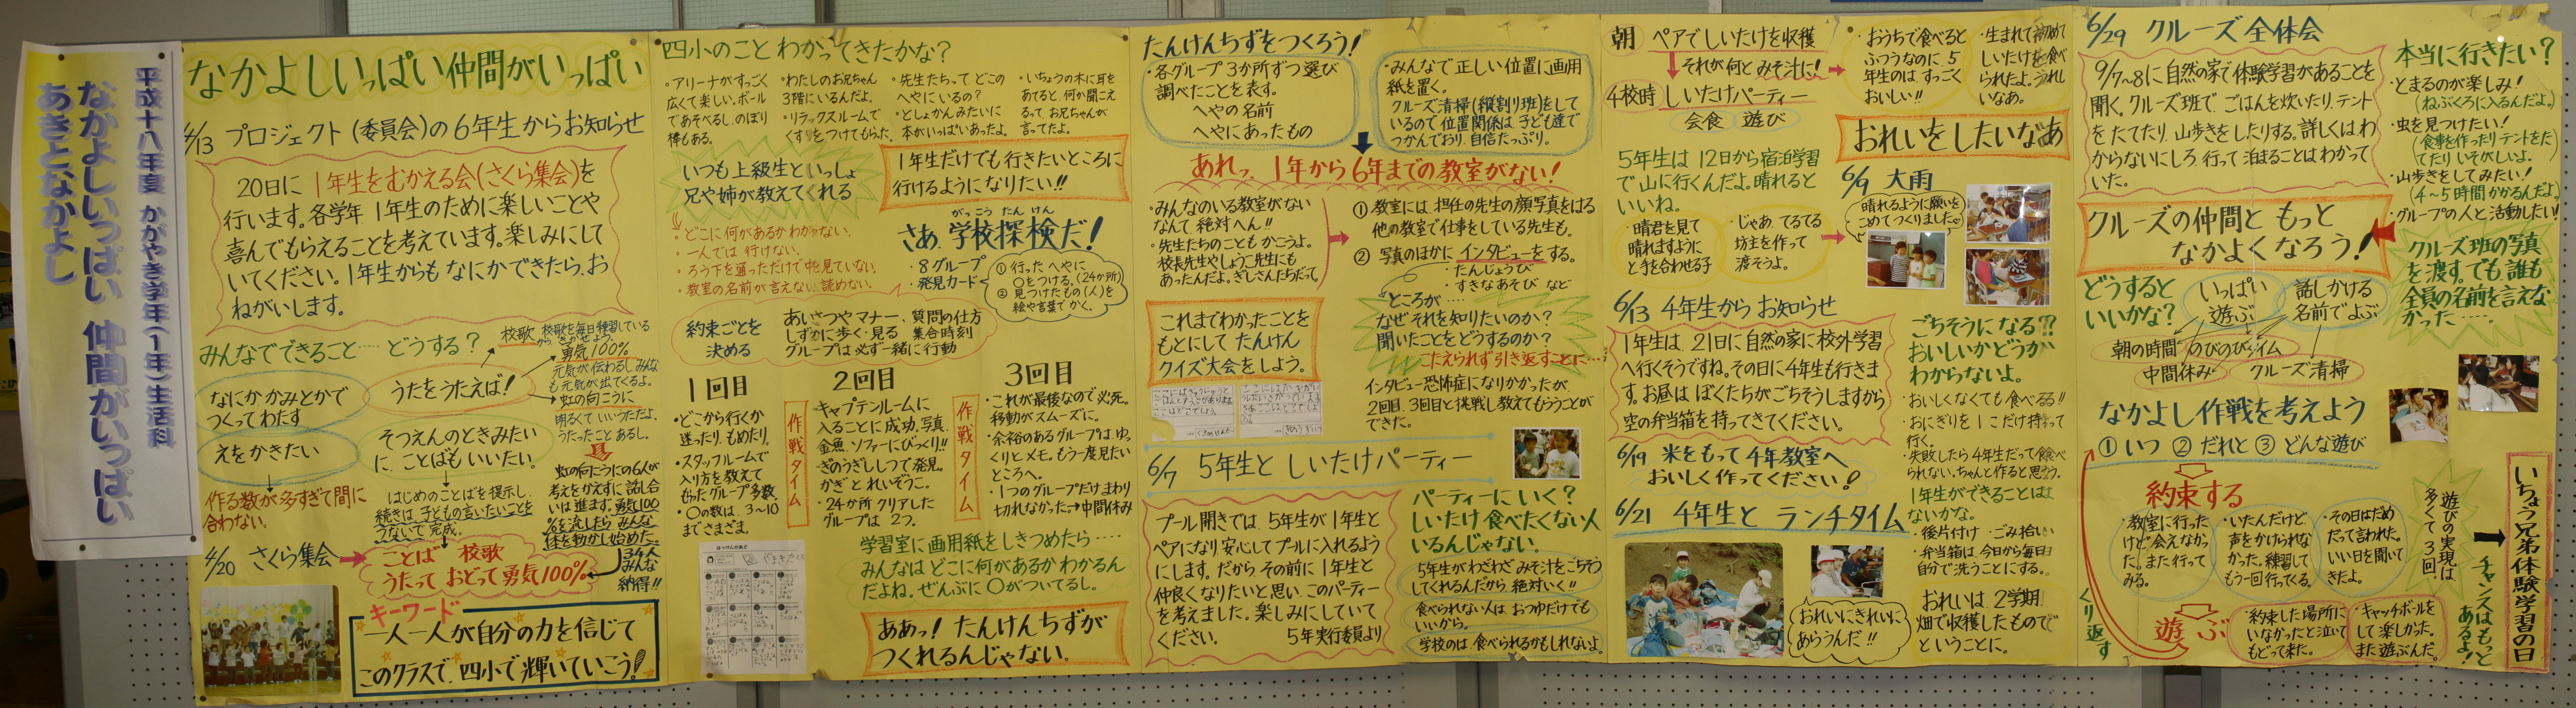 平成十八年度 かがやき学年(1年)生活科
なかよしいっぱい 仲間がいっぱい
あきとなかよし
なかよしいっぱい仲間がいっぱい
4/13 プロジェクト(委員会)の6年生からお知らせ
20日に 1年生をむかえる会(さくら集会)を
行います。各学年 1年生のために楽しいことや
喜んでもらえることを考えています。楽しみにして
いてください。1年生からも なにかできたら、お
ねがいします。
みんなでできること…… どうする?
なにか かみとかで
つくってわたす
えをかきたい
作る数が多すぎて間に
合わない。
うたをうたえば!
そつえんのときみたい
に、ことばも いいたい。
はじめのことばを提示し、
続きは、子どもの言いたいことを
つないで 完成。
校歌
校歌を毎日練習している
勇気100%
元気が伝わるし みんな
も元気が出てくるよ。
虹の向こうに
明るくて いいうただよ。
うたったこと あるし。
虹の向こうにの6人が
考えをかえずに 話し合
いは 進まず。勇気100
%を流したら みんな
体を動かし始めた。
34人
みんな
納得!!
4/20 さくら集会
ことば 校歌
うたって おどって 勇気100%
キーワード
一人一人が自分の力を信じて
このクラスで、四小で輝いていこう!
四小のこと わかってきたかな?
・アリーナがすっごく
広くて楽しい。ボール
であそべるし、のぼり
棒もある。
・わたしのお兄ちゃん
3階にいるんだよ。
・リラックスルームで
くすりをつけてもらった。
・先生たちって どこの
へやにいるの?
・としょかんみたいに
本がいっぱいあったよ。
・いちょうの木に耳を
あてると、何か聞こえ
るって、お兄ちゃんが
言ってたよ。
いつも上級生といっしょ
兄や姉が教えてくれる
・どこに何があるかわからない。
・一人では 行けない。
・ろう下を通っただけで中を見ていない。
・教室の名前が言えない、読めない。
1年生だけでも行きたいところに
行けるようになりたい!!
がっこう たんけん
さあ、学校探検だ!
・8グループ
・発見カード
① 行った へやに
〇をつける。(24か所)
② 見つけたもの(人)を
絵や言葉で かく。
約束ごとを
決める
あいさつやマナー、質問の仕方
しずかに歩く・見る 集合時刻
グループは必ず一緒に行動
1回目
・どこから行くか
迷ったり、もめたり。
・スタッフルームで
入り方を教えて
もらったグループ多数。
・〇の数は、3〜10
までさまざま。
作戦タイム
2回目
・キャプテンルームに
入ることに成功。写真、
金魚、ソファーにびっくり!!
・ぎのうぎしつで発見。
かぎ と れいぞうこ。
・24か所クリアした
グループは 2つ。
作戦タイム
3回目
・これが最後なので必死。
移動がスムーズに。
・余裕のあるグループは、ゆっ
くりとメモ。もう一度見たい
ところへ。
・1つのグループだけまわり
切れなかった→中間休み
学習室に画用紙をしきつめたら……
みんなは どこに何があるか わかるん
だよね。ぜんぶに 〇がついてるし。
ああっ! たんけんちずが
つくれるんじゃない。
たんけんちずをつくろう!
・各グループ 3か所ずつ選び
調べたことを表す。
へやの名前
へやにあったもの
・みんなで正しい位置に画用
紙を置く。
クルーズ清掃(縦割り班)をして
いるので 位置関係は、子ども達で
つかんでおり、自信たっぷり。
あれっ、1年から6年までの教室がない!
・みんなのいる教室がない
なんて 絶対へん!!
・先生たちのことも かこうよ。
校長先生やしょうこ先生にも
あったんだよ。ぎしさんたちだって。
① 教室には、担任の先生の顔写真をはる
他の教室で仕事をしている先生も。
② 写真のほかに インタビューをする。
・たんじょうび
・すきなあそび など
これまでわかったことを
もとにして たんけん
クイズ大会をしよう。
ところが……
なぜ それを知りたいのか?
聞いたことをどうするのか?
こたえられず引き返すことに…
インタビュー恐怖症になりかかったが、
2回目、3回目と挑戦し教えてもらうことが
できた。
6/7 5年生と しいたけパーティー
プール開きでは、5年生が1年生と
ペアになり安心して プールに入れるよう
にします。だから、その前に 1年生と
仲良くなりたいと思い、このパーティー
を考えました。楽しみにしていて
ください。 5年実行委員より
パーティーに いく?
しいたけ 食べたくない人
いるんじゃない。
5年生がわざわざみそ汁をごちそう
してくれるんだから 絶対いく!!
食べられない人は、おつゆだけでも
いいから。
学校のは、食べられるかもしれないよ。
朝 ペアでしいたけを収穫
それが何と みそ汁に!
4校時 しいたけパーティー
会食 遊び
・おうちで食べると
ふつうなのに、5
年生のは、すっごく
おいしい!!
・生まれて初めて
しいたけを食べ
られたよ。うれし
いなあ。
おれいをしたいなあ
5年生は 12日から宿泊学習
で山に行くんだよ。晴れると
いいね。
・晴君を見て
晴れますように
と手を合わせる子
・じゃあ、てるてる
坊主を作って
渡そうよ。
6/9 大雨
晴れるように願いを
こめてつくりました
6/13 4年生から お知らせ
1年生は、21日に自然の家に校外学習
へ行くそうですね。その日に4年生も行きま
す。お昼は ぼくたちがごちそうしますから
空の弁当箱を持ってきてください。
6/19 米をもって 4年教室へ
おいしく作ってください!
6/21 4年生と ランチタイム
おれいにきれいに
あらうんだ!!
ごちそうになる??
おいしいかどうか
わからないよ。
・おいしくなくても 食べる!!
・おにぎりを1こだけ持って
行く。
・失敗したら4年生だって食べ
られない。ちゃんと作ると思う。
1年生ができることは
ないかな。
・後片付け ・ごみ拾い
・弁当箱は、今日から毎日
自分で洗うことにする。
おれいは、2学期、
畑で収穫したもので
ということに。
6/29 クルーズ 全体会
9/7〜8に 自然の家で体験学習があることを
聞く。クルーズ班で ごはんを炊いたり、テント
を たてたり、山歩きをしたりする。詳しくは わ
からないにしろ、行って 泊まることは わかって
いた。
本当に行きたい?
・とまるのが楽しみ!
(ねぶくろに入るんだよ。)
・虫を見つけたい!
(食事を作ったりテントをた
てたり いそがしいよ。)
・山歩きをしてみたい!
(4〜5時間かかるんだよ。)
・グループの人と活動したい!
クルーズの仲間と もっと
なかよく なろう!
クルーズ班の写真
を渡す。でも、誰も
全員の名前を言えな
かった……。
どうすると
いいかな?
いっぱい
遊ぶ
話しかける
名前でよぶ
朝の時間 のびのびタイム
中間休み クルーズ清掃
なかよし作戦を考えよう
① いつ ② だれと ③ どんな遊び
約束する
・教室に行った
けど、会えなかっ
た。また行って
みる。
・いたんだけど
声をかけられな
かった。練習して
もう一回行ってくる。
・その日はだめ
だって言われた。
いい日を聞いて
きたよ。
遊ぶ
・約束した場所に
いなかったと泣いて
もどって来た。
・キャッチボールを
して 楽しかった。
また遊ぶんだ。
くり返す
遊びの実現は、
多くて3回。
チャンスはもっと
あるよ!
いちょう兄弟体験学習の日